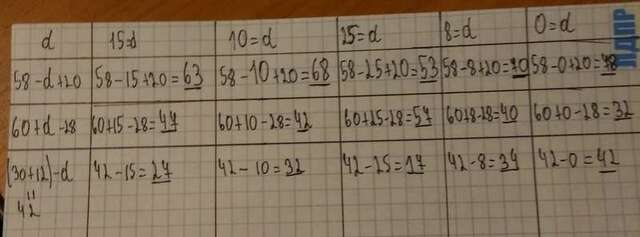 d 15=d 10=d 25=d 8=d 0=d
58-d+20 58-15+20=63 58-10+20=68 58-25+20=53 58-8+20=70 58-0+20=78
60+d-28 60+15-28=47 60+10-28=42 60+25-28=57 60+8-28=40 60+0-28=32
(30+12)-d 42-15=27 42-10=32 42-25=17 42-8=34 42-0=42
42